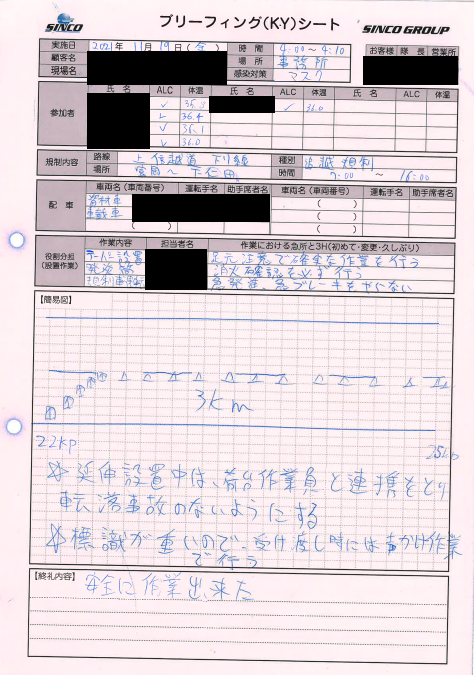 SINCO
ブリーフィング(KY)シート
SINCO GROUP
実施日 2021年 11月 19日(金) 時間 4:00~4:10 お客様 隊長 営業所
顧客名 場所 事務所
現場名 感染対策 マスク
参加者 氏名 ALC 体温 氏名 ALC 体温 氏名 ALC 体温
✓ 35.8 ✓ 36.0
✓ 36.4
✓ 36.1
✓ 36.0
規制内容 路線 上信越道 下り線 種別 追越規制
場所 富岡~下仁田 時間 7:00 ~ 16:00
配車 車両名(車両番号) 運転手名 助手席者名 車両名(車両番号) 運転手名 助手席者名
資材車 ( )
標識車 ( )
( )
役割分担(設置作業) 作業内容 担当者名 作業における急所と3H(初めて・変更・久しぶり)
設置 足元注意で確実な作業を行う
発炎筒 消火確認を必ず行う
規制車運転 急発進、急ブレーキをやらない
【簡易図】
3Km
22KP 25KP
☆延伸設置中は、荷台作業員と連携をとり
転落事故のないようにする
☆標識が重いので、受け渡し時には声かけ作業
で行う
【終礼内容】
安全に作業出来た